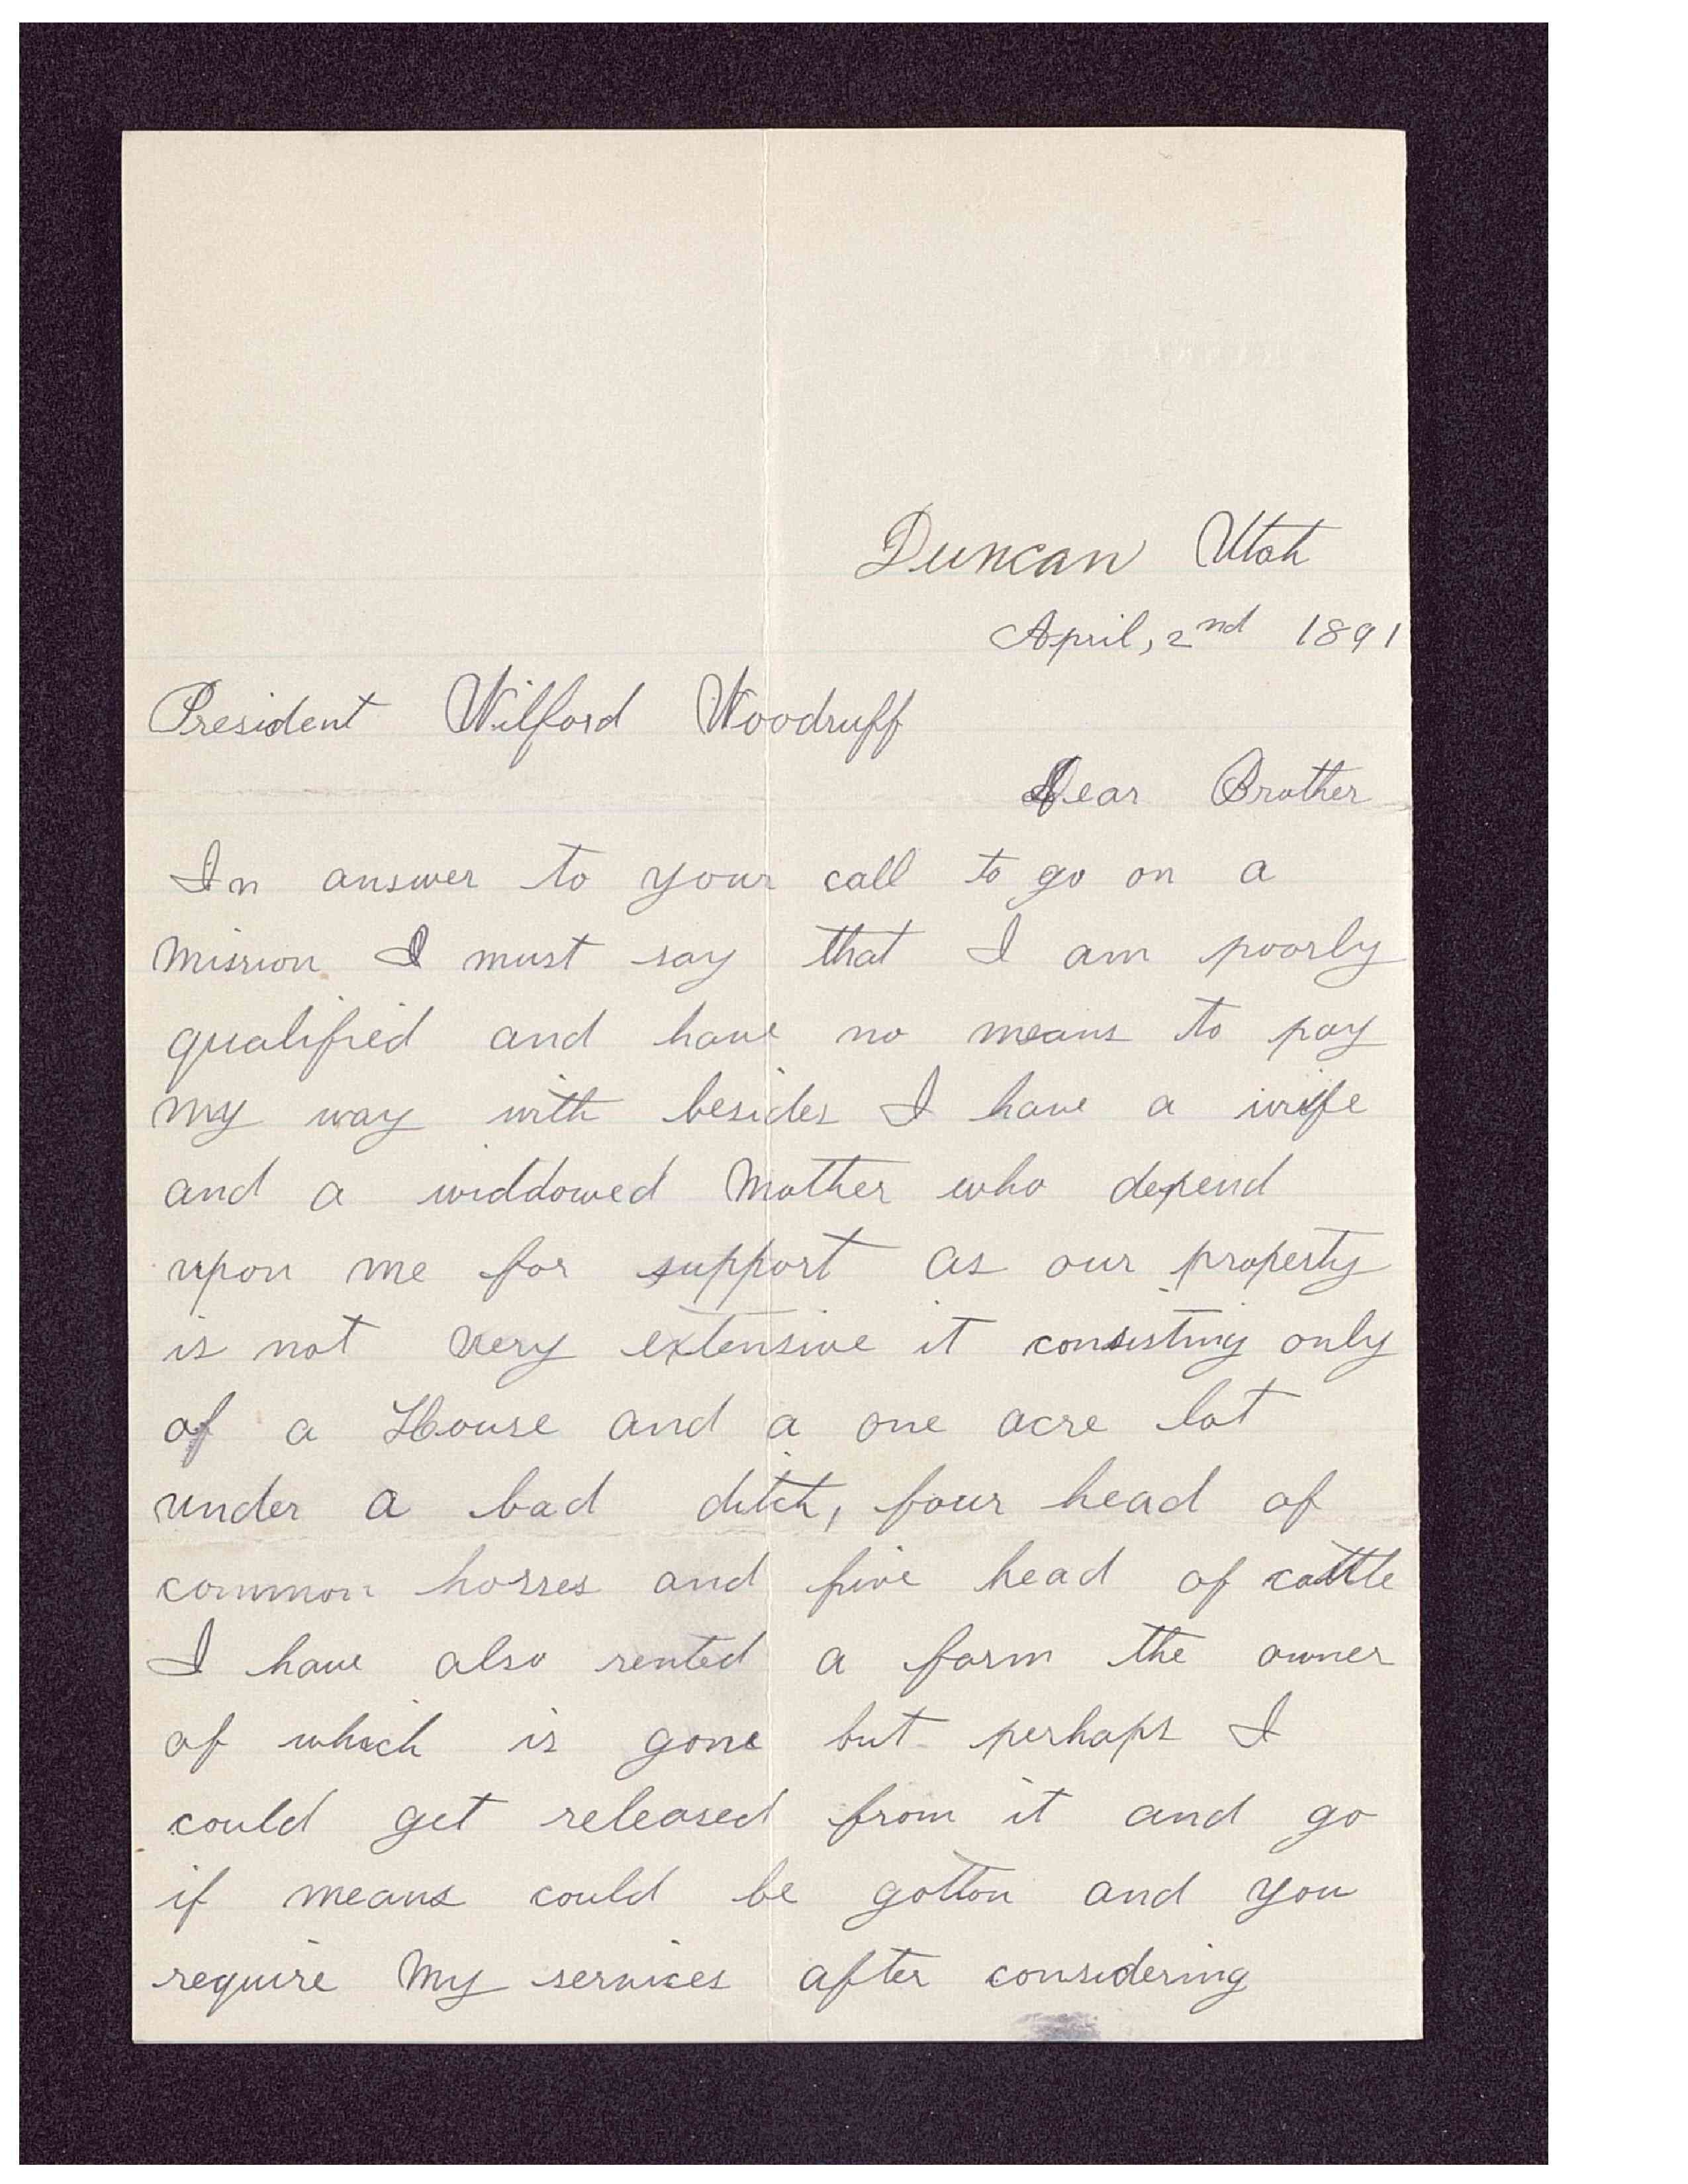 Duncan Utah
April, 2nd 1891
President Wilford Woodruff
Dear Brother
In answer to your call to go on a
mission I must say that I am poorly
qualified and have no means to pay
my way with besides I have a wife
and a widdowed Mother who depend
upon me for support as our property
is not very extensive it consisting only
of a House and a one acre lot
under a bad ditch, four head of
common horses and five head of cattle
I have also rented a farm the owner
of which is gone but perhaps I
could get released from it and go
if means could be gotton and you
require my services after considering